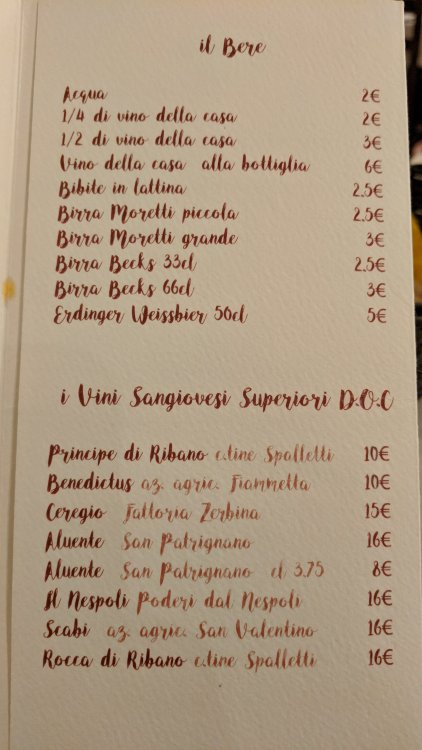 il Bere
Acqua 2€
1/4 di vino della casa 2€
1/2 di vino della casa 3€
Vino della casa alla bottiglia 6€
Bibite in lattina 2.5€
Birra Moretti piccola 2.5€
Birra Moretti grande 3€
Birra Becks 33cl 2.5€
Birra Becks 66cl 3€
Erdinger Weissbier 50cl 5€
i Vini Sangiovesi Superiori D.O.C
Principe di Ribano c.tine Spalletti 10€
Benedictus az. agric. Fiammetta 10€
Ceregio Fattoria Zerbina 15€
Aluente San Patrignano 16€
Aluente San Patrignano cl 3.75 8€
Il Nespoli Poderi dal Nespoli 16€
Scabi az. agric. San Valentino 16€
Rocca di Ribano c.tine Spalletti 16€